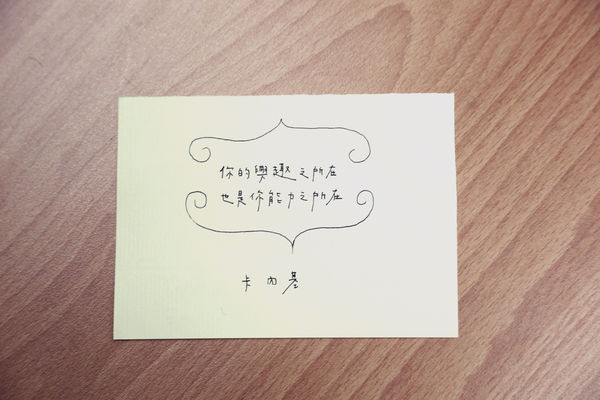 你的興趣之所在
也是你能力之所在
卡內基